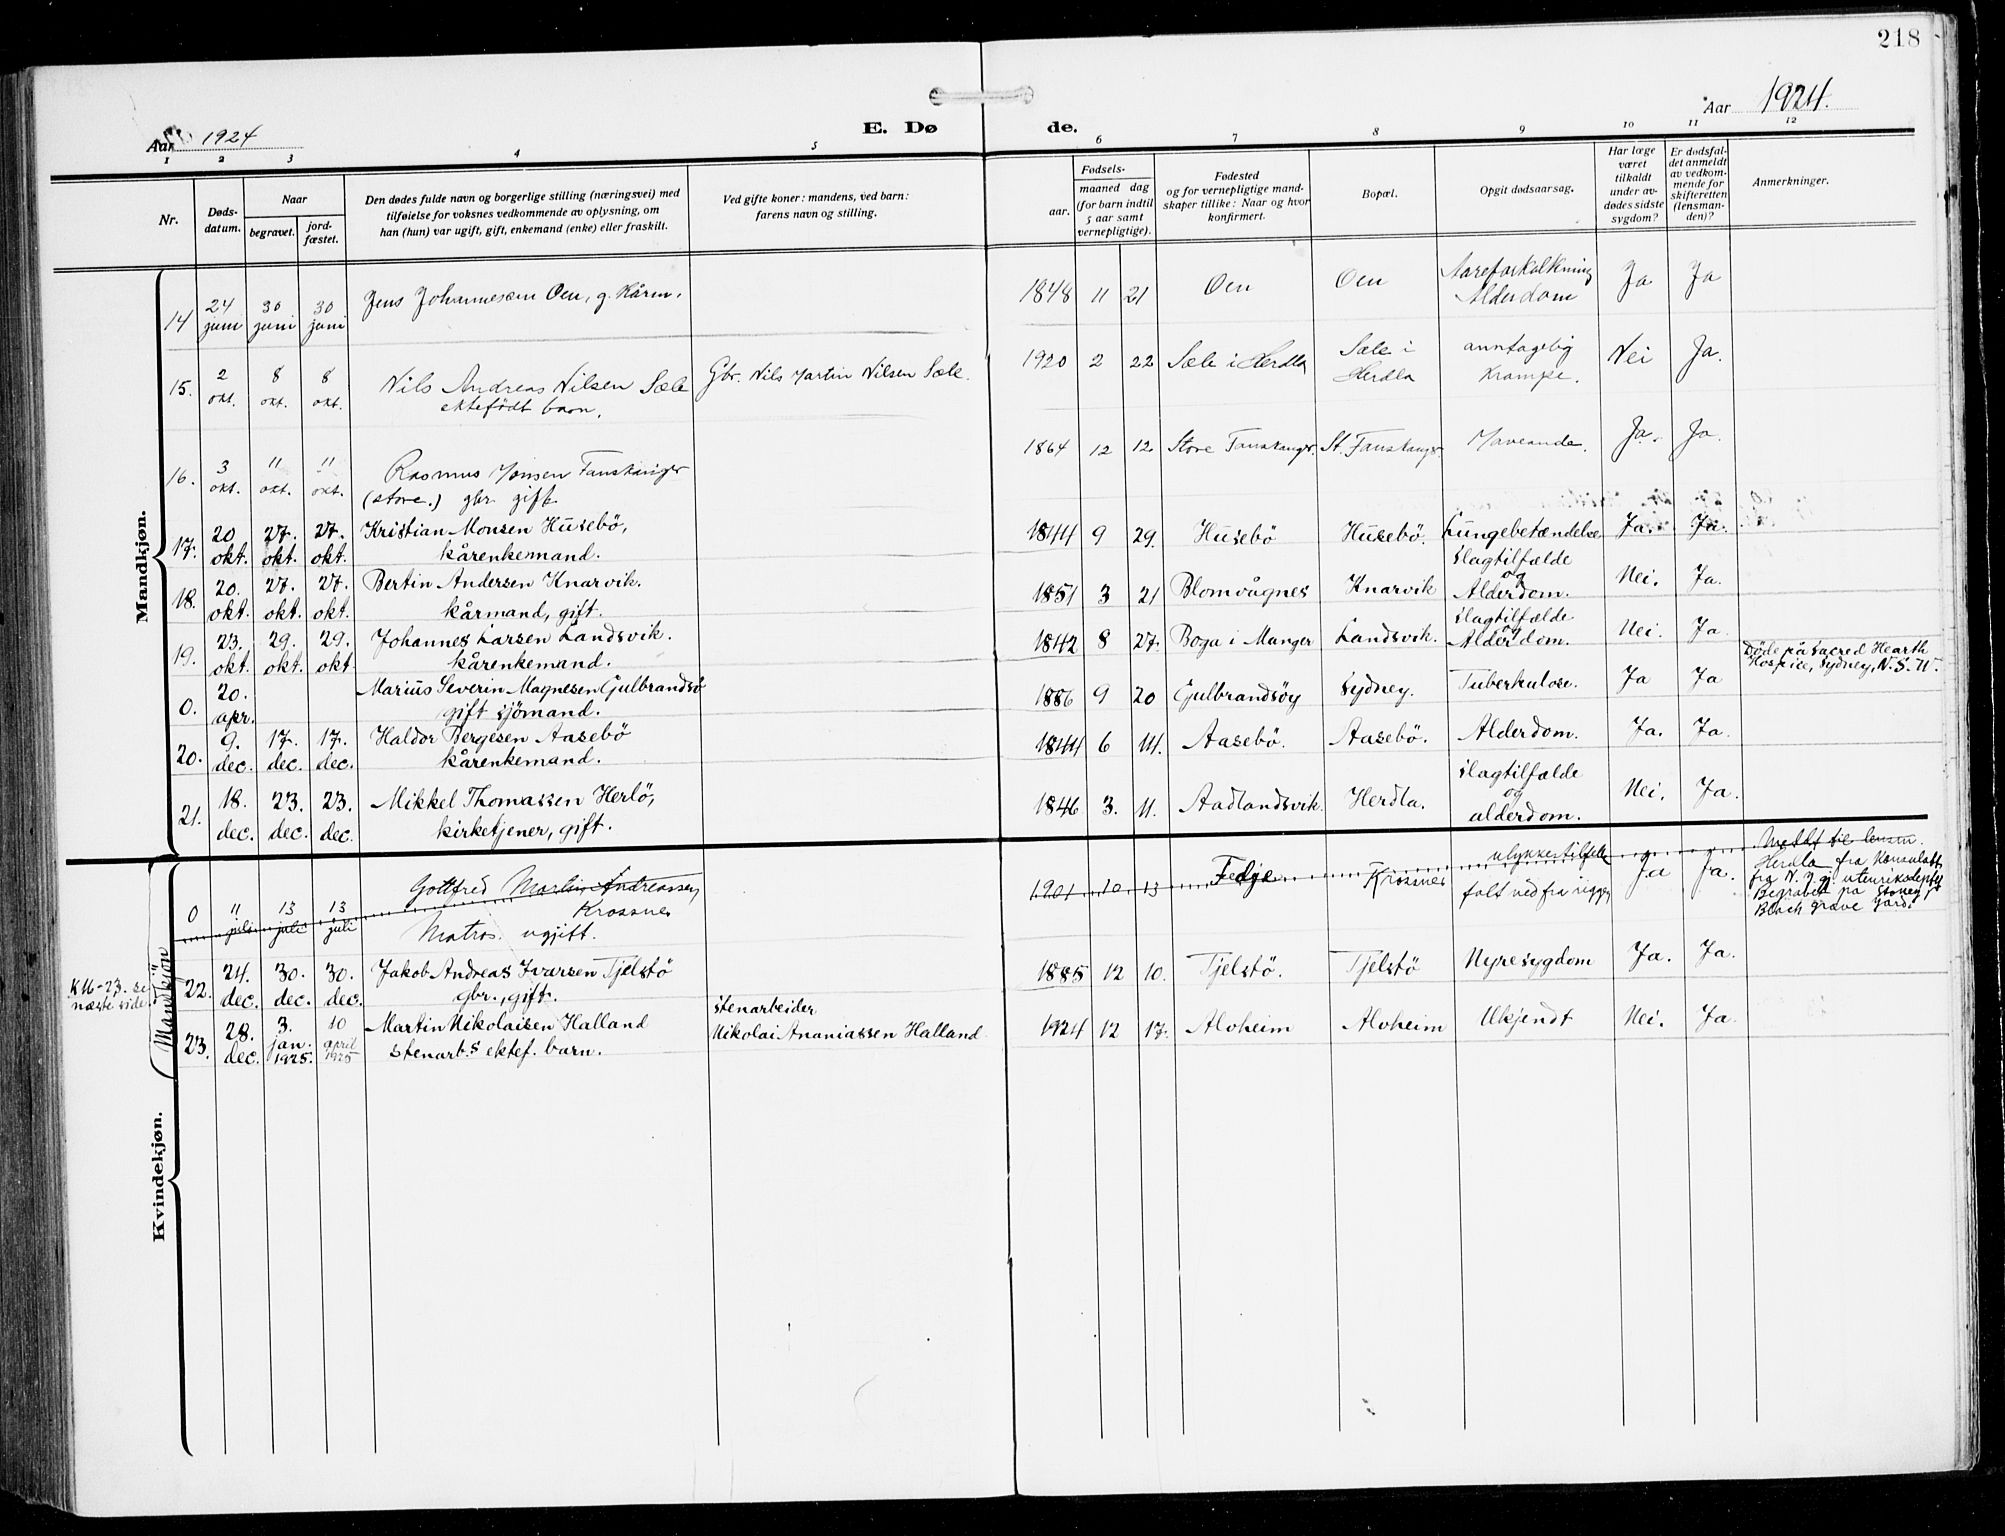 218
Aar 1924
Aar 1924.
E. Dø de.
1 2 3 4 5 6 7 8 9 10 11 12
Nr.
Døds-
datum.
Naar
begravet.
jord-
fæstet.
Den dødes fulde navn og borgerlige stilling (næringsvei) med
tilføielse for voksnes vedkommende av oplysning, om
han (hun) var ugift, gift, enkemand (enke) eller fraskilt.
Ved gifte koner: mandens, ved barn:
farens navn og stilling.
Fødsels-
aar.
maaned dag
(for barn indtil
5 aar samt
vernepligtige).
Fødested
og for vernepligtige mand-
skaper tillike: Naar og hvor
konfirmert.
Bopæl.
Opgit dødsaarsag.
Har læge
været
tilkaldt
under av-
dødes sidste
sygdom?
Er dødsfal-
det anmeldt
av vedkom-
mende for
skifteretten
(lensman-
den)?
Anmerkninger.
Mandkjøn.
14 24 juni 30 juni 30 juni Jens Johannesen Oen, g. Kårm. 1848 11 21 Oen Oen Aareforkalkning Alderdom Ja Ja
15. 2 okt. 8 okt. 8 okt. Nils Andreas Nilsen Sæle Gbr. Nils Martin Nilsen Sæle. 1920 2 22 Sæle i Herdla Sæle i Herdla anntagelig Krampe. Nei Ja.
ektefödt barn.
16. 3 okt. 11 okt. 11 okt. Rasmus Monsen Fanskanger 1864 12 12 Store Fanskanger. St. Fanskanger. Ja. Ja.
(store.) gbr. gift.
17. 20 okt. 27. okt. 27. okt. Kristian Monsen Husebö, 1844 9 29. Husebö Husebö. Lungebetændelse Ja. Ja.
kårenkemand.
18. 20. okt. 27. okt. 27. okt. Bertin Andersen Knarvik. 1851 3 21 Blomvågnes Knarvik Slagtilfælde og Alderdom. Nei. Ja.
kårmand, gift.
19. 23. okt. 29. okt. 29. okt. Johannes Larsen Landsvik. 1842 8 27. Boga i Manger Landsvik. Slagtilfælde og Alderdom. Nei. Ja.
kårenkemand.
0. 20. apr. Marius Severin Magnesen Gulbrandsö 1886 9 20 Gulbrandsöy Sydney. Tuberkulose. Ja Ja Døde på Sacred Hearth
gift sjömand. Hospice, Sydney, N.S.W.
20. 9. dec. 17. dec. 17. dec. Haldor Bergesen Aasebö 1844 6 14. Aasebö. Aasebö. Alderdom. Ja. Ja.
kårenkemand.
21. 18. dec. 23. dec. 23. dec. Mikkel Thomassen Herlö, 1846 3. 11. Aadlandsvik. Herdla. Slagtilfælde og alderdom. Nei. Ja.
kirketjener, gift.
0 11 juli 13 juli 13 juli Gottfred Martin Andreassen, 1901 10 13 Fedje Krossnes ulykkestilfelle Ja Ja.
Krossnes falt ned fra riggen
Matros. ugift.
Meldt til lensm.
Herdla fra Konsulatet
Begravet på Stoney
Beach grave yard.
Mandkjön
K 16-23. se
næste side
22. 24. dec. 30. dec. 30. dec. Jakob Andreas Ivarsen Tjelstö 1885 12 10. Tjelstö. Tjelstö Nyresygdom Ja. Ja.
gbr., gift.
23. 28. dec. 3. jan. 1925. 10 april 1925 Martin Nikolaisen Halland stenarbeider Nikolai Ananiassen Halland 1924 12 17. Alvheim Alvheim Ukjendt Nei. Ja.
stenarb.s ektef. barn.
Kvindekjøn.